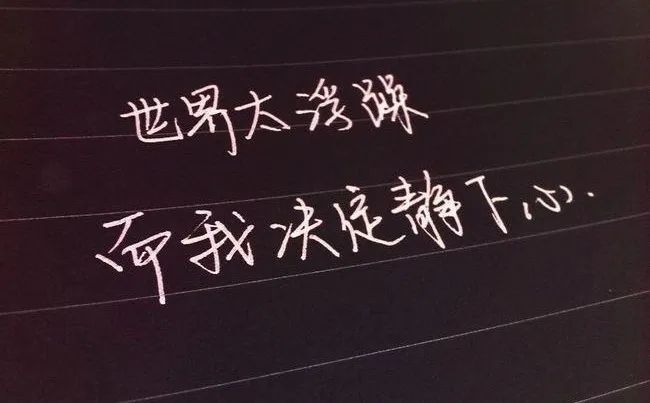 世界太浮躁
而我决定静下心.